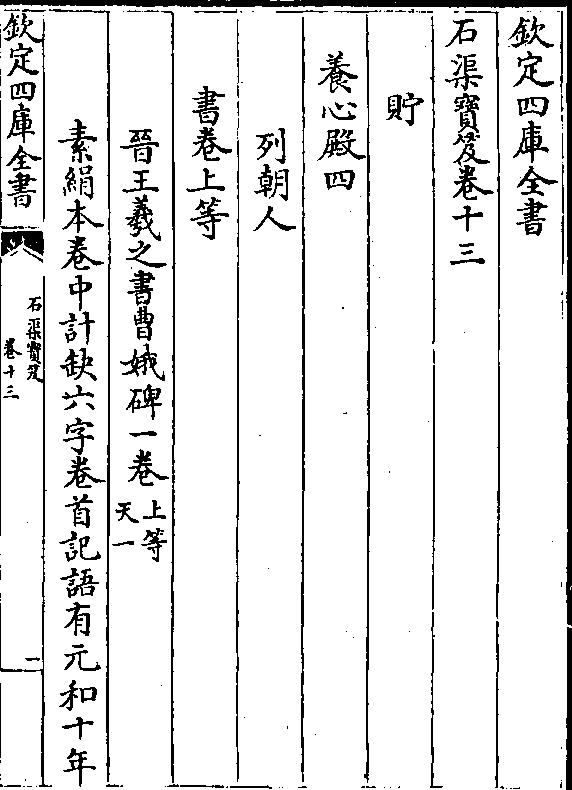 欽定四庫全書
石渠寶笈卷十三
貯
養心殿四
列朝人
書卷上等
晉王羲之書曹娥碑一卷
上等
天一
素絹本卷中計缺六字卷首記語有元和十年
欽定四庫全書
石渠寶笈
卷十三
一